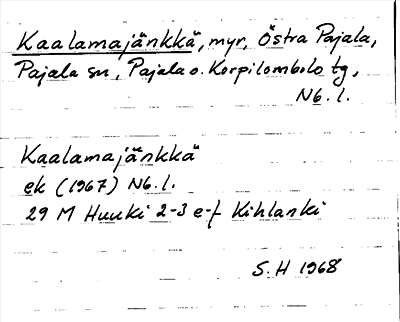 Kaalamajänkkä, myr, Östra Pajala,
Pajala sn, Pajala o. Korpilombolo tg,
Nb. l.
Kaalamajänkkä
ek (1967) Nb. l.
29 M Huuki 2-3 e-f Kihlanki
S.H 1968